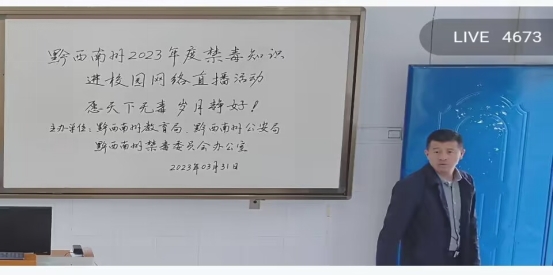 LIVE 4673
黔西南州2023年度禁毒知识
进校园网络直播活动
愿天下无毒 岁月静好！
主办单位：黔西南州教育局、黔西南州公安局
黔西南州禁毒委员会办公室
2023年03月31日